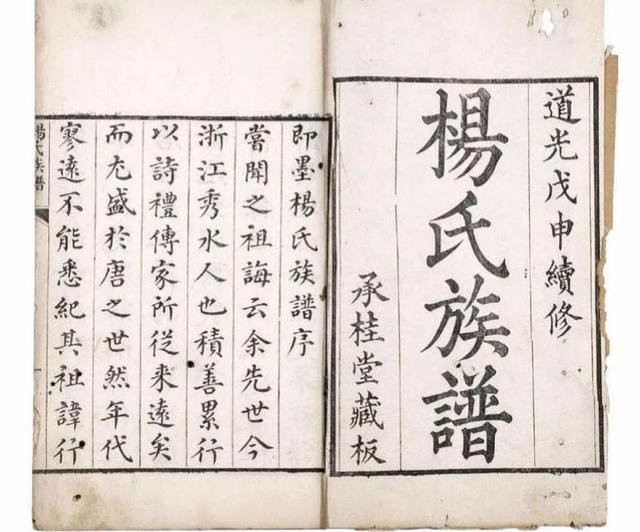 道光戊申續修
楊氏族譜
承桂堂藏板
即墨楊氏族譜序
嘗聞之祖誨云余先世今
浙江秀水人也積善累行
以詩禮傳家所從来遠矣
而尤盛於唐之世然年代
寥遠不能悉紀其祖諱行
楊氏族譜